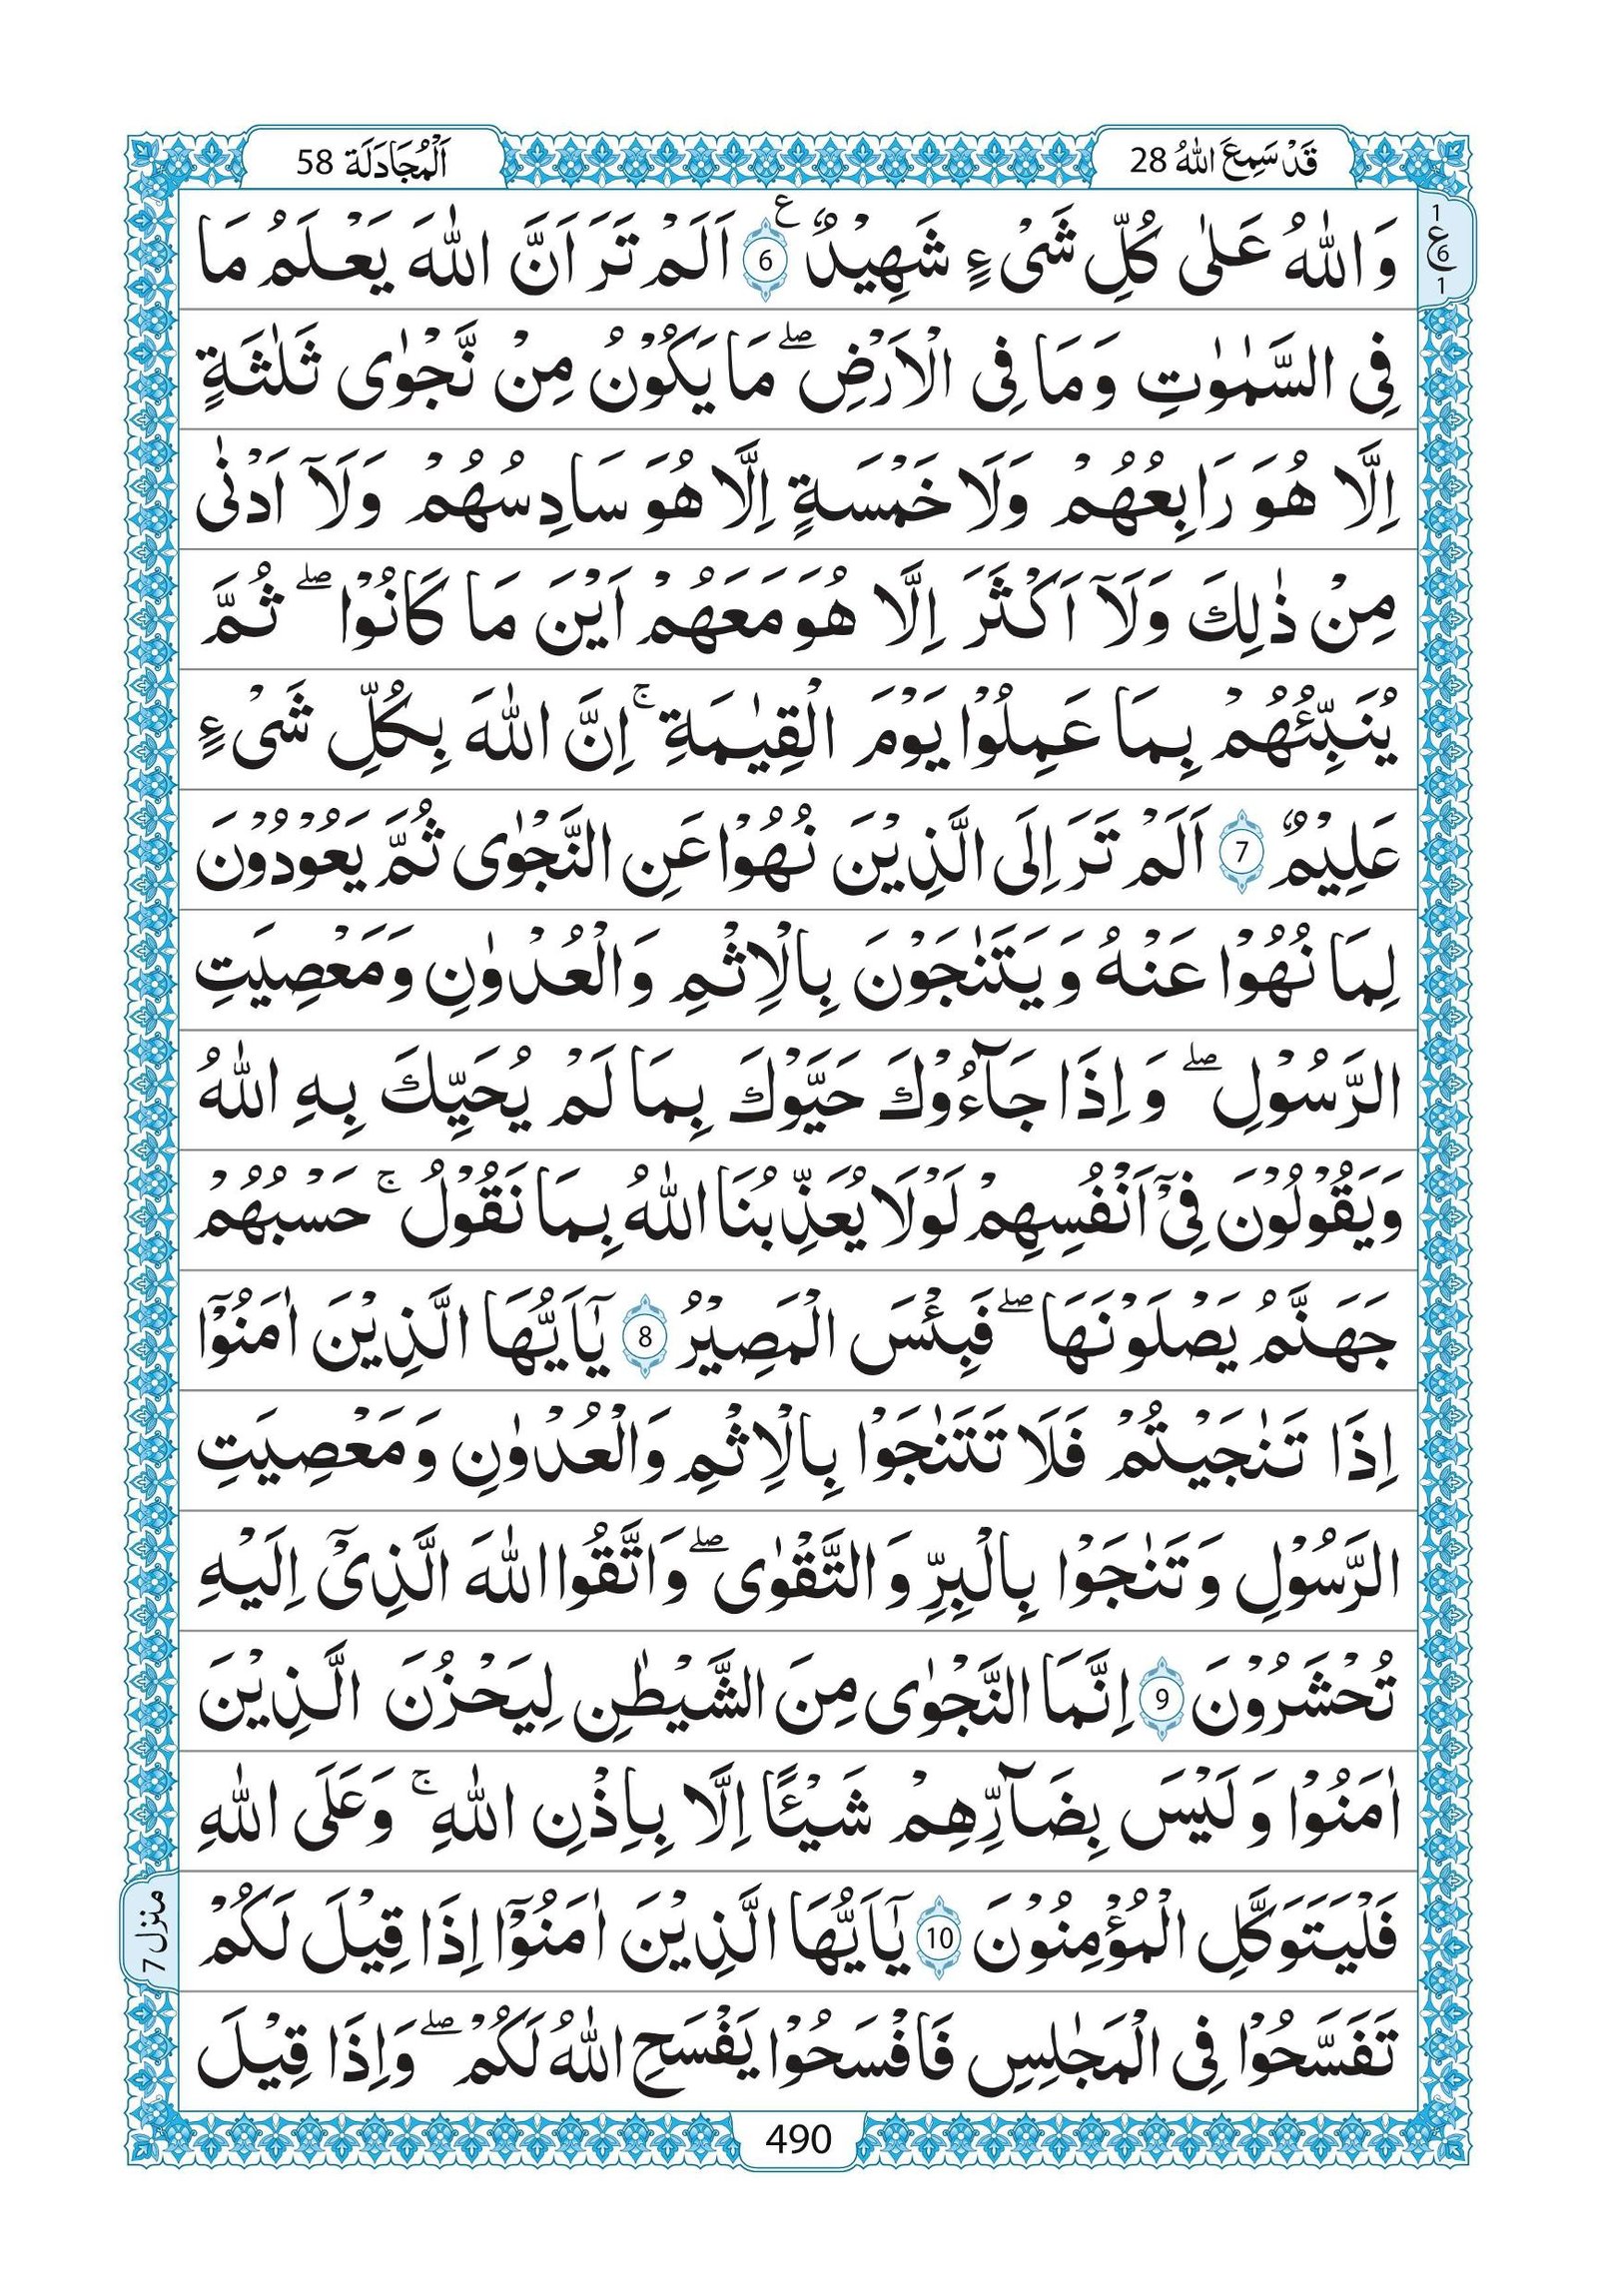 قَدْ سَمِعَ اللّٰهُ 28
اَلْمُجَادَلَة 58
1
ع
6
1
وَاللّٰهُ عَلٰى كُلِّ شَىْءٍ شَهِيْدٌ ۧ 6 اَلَمْ تَرَ اَنَّ اللّٰهَ يَعْلَمُ مَا
فِى السَّمٰوٰتِ وَمَا فِى الْاَرْضِ ۖ مَا يَكُوْنُ مِنْ نَّجْوٰى ثَلٰثَةٍ
اِلَّا هُوَ رَابِعُهُمْ وَلَا خَمْسَةٍ اِلَّا هُوَ سَادِسُهُمْ وَلَآ اَدْنٰى
مِنْ ذٰلِكَ وَلَآ اَكْثَرَ اِلَّا هُوَ مَعَهُمْ اَيْنَ مَا كَانُوْا ۖ ثُمَّ
يُنَبِّئُهُمْ بِمَا عَمِلُوْا يَوْمَ الْقِيٰمَةِ ۚ اِنَّ اللّٰهَ بِكُلِّ شَىْءٍ
عَلِيْمٌ 7 اَلَمْ تَرَ اِلَى الَّذِيْنَ نُهُوْا عَنِ النَّجْوٰى ثُمَّ يَعُوْدُوْنَ
لِمَا نُهُوْا عَنْهُ وَيَتَنٰجَوْنَ بِالْاِثْمِ وَالْعُدْوٰنِ وَمَعْصِيَتِ
الرَّسُوْلِ ۖ وَاِذَا جَآءُوْكَ حَيَّوْكَ بِمَا لَمْ يُحَيِّكَ بِهِ اللّٰهُ
وَيَقُوْلُوْنَ فِىْٓ اَنْفُسِهِمْ لَوْلَا يُعَذِّبُنَا اللّٰهُ بِمَا نَقُوْلُ ۚ حَسْبُهُمْ
جَهَنَّمُ يَصْلَوْنَهَا ۖ فَبِئْسَ الْمَصِيْرُ 8 يٰٓاَيُّهَا الَّذِيْنَ اٰمَنُوْٓا
اِذَا تَنٰجَيْتُمْ فَلَا تَتَنٰجَوْا بِالْاِثْمِ وَالْعُدْوٰنِ وَمَعْصِيَتِ
الرَّسُوْلِ وَتَنٰجَوْا بِالْبِرِّ وَالتَّقْوٰى ۖ وَاتَّقُوا اللّٰهَ الَّذِىْٓ اِلَيْهِ
تُحْشَرُوْنَ 9 اِنَّمَا النَّجْوٰى مِنَ الشَّيْطٰنِ لِيَحْزُنَ الَّذِيْنَ
اٰمَنُوْا وَلَيْسَ بِضَآرِّهِمْ شَيْـًٔا اِلَّا بِاِذْنِ اللّٰهِ ۚ وَعَلَى اللّٰهِ
فَلْيَتَوَكَّلِ الْمُؤْمِنُوْنَ 10 يٰٓاَيُّهَا الَّذِيْنَ اٰمَنُوْٓا اِذَا قِيْلَ لَكُمْ
تَفَسَّحُوْا فِى الْمَجٰلِسِ فَافْسَحُوْا يَفْسَحِ اللّٰهُ لَكُمْ ۖ وَاِذَا قِيْلَ
منزل 7
490